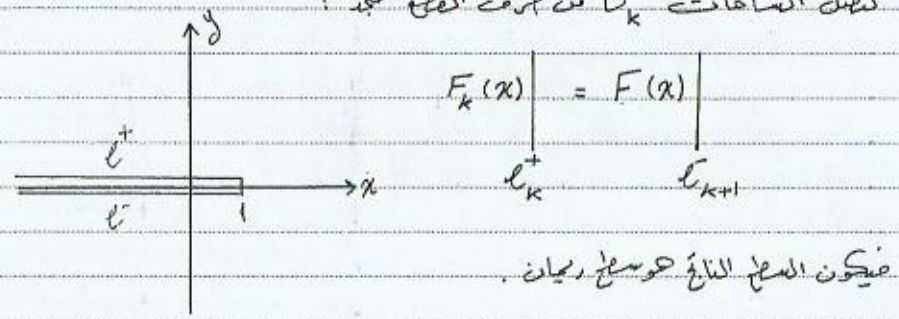 نصل الساحات D_k من طرف القطع نجد :
y
F_k(x) | = F(x) |
ℓ^+
ℓ^+_k ℓ^-_{k+1}
x
ℓ^- 1
فيكون السطح الناتج هو سطح ريمان .